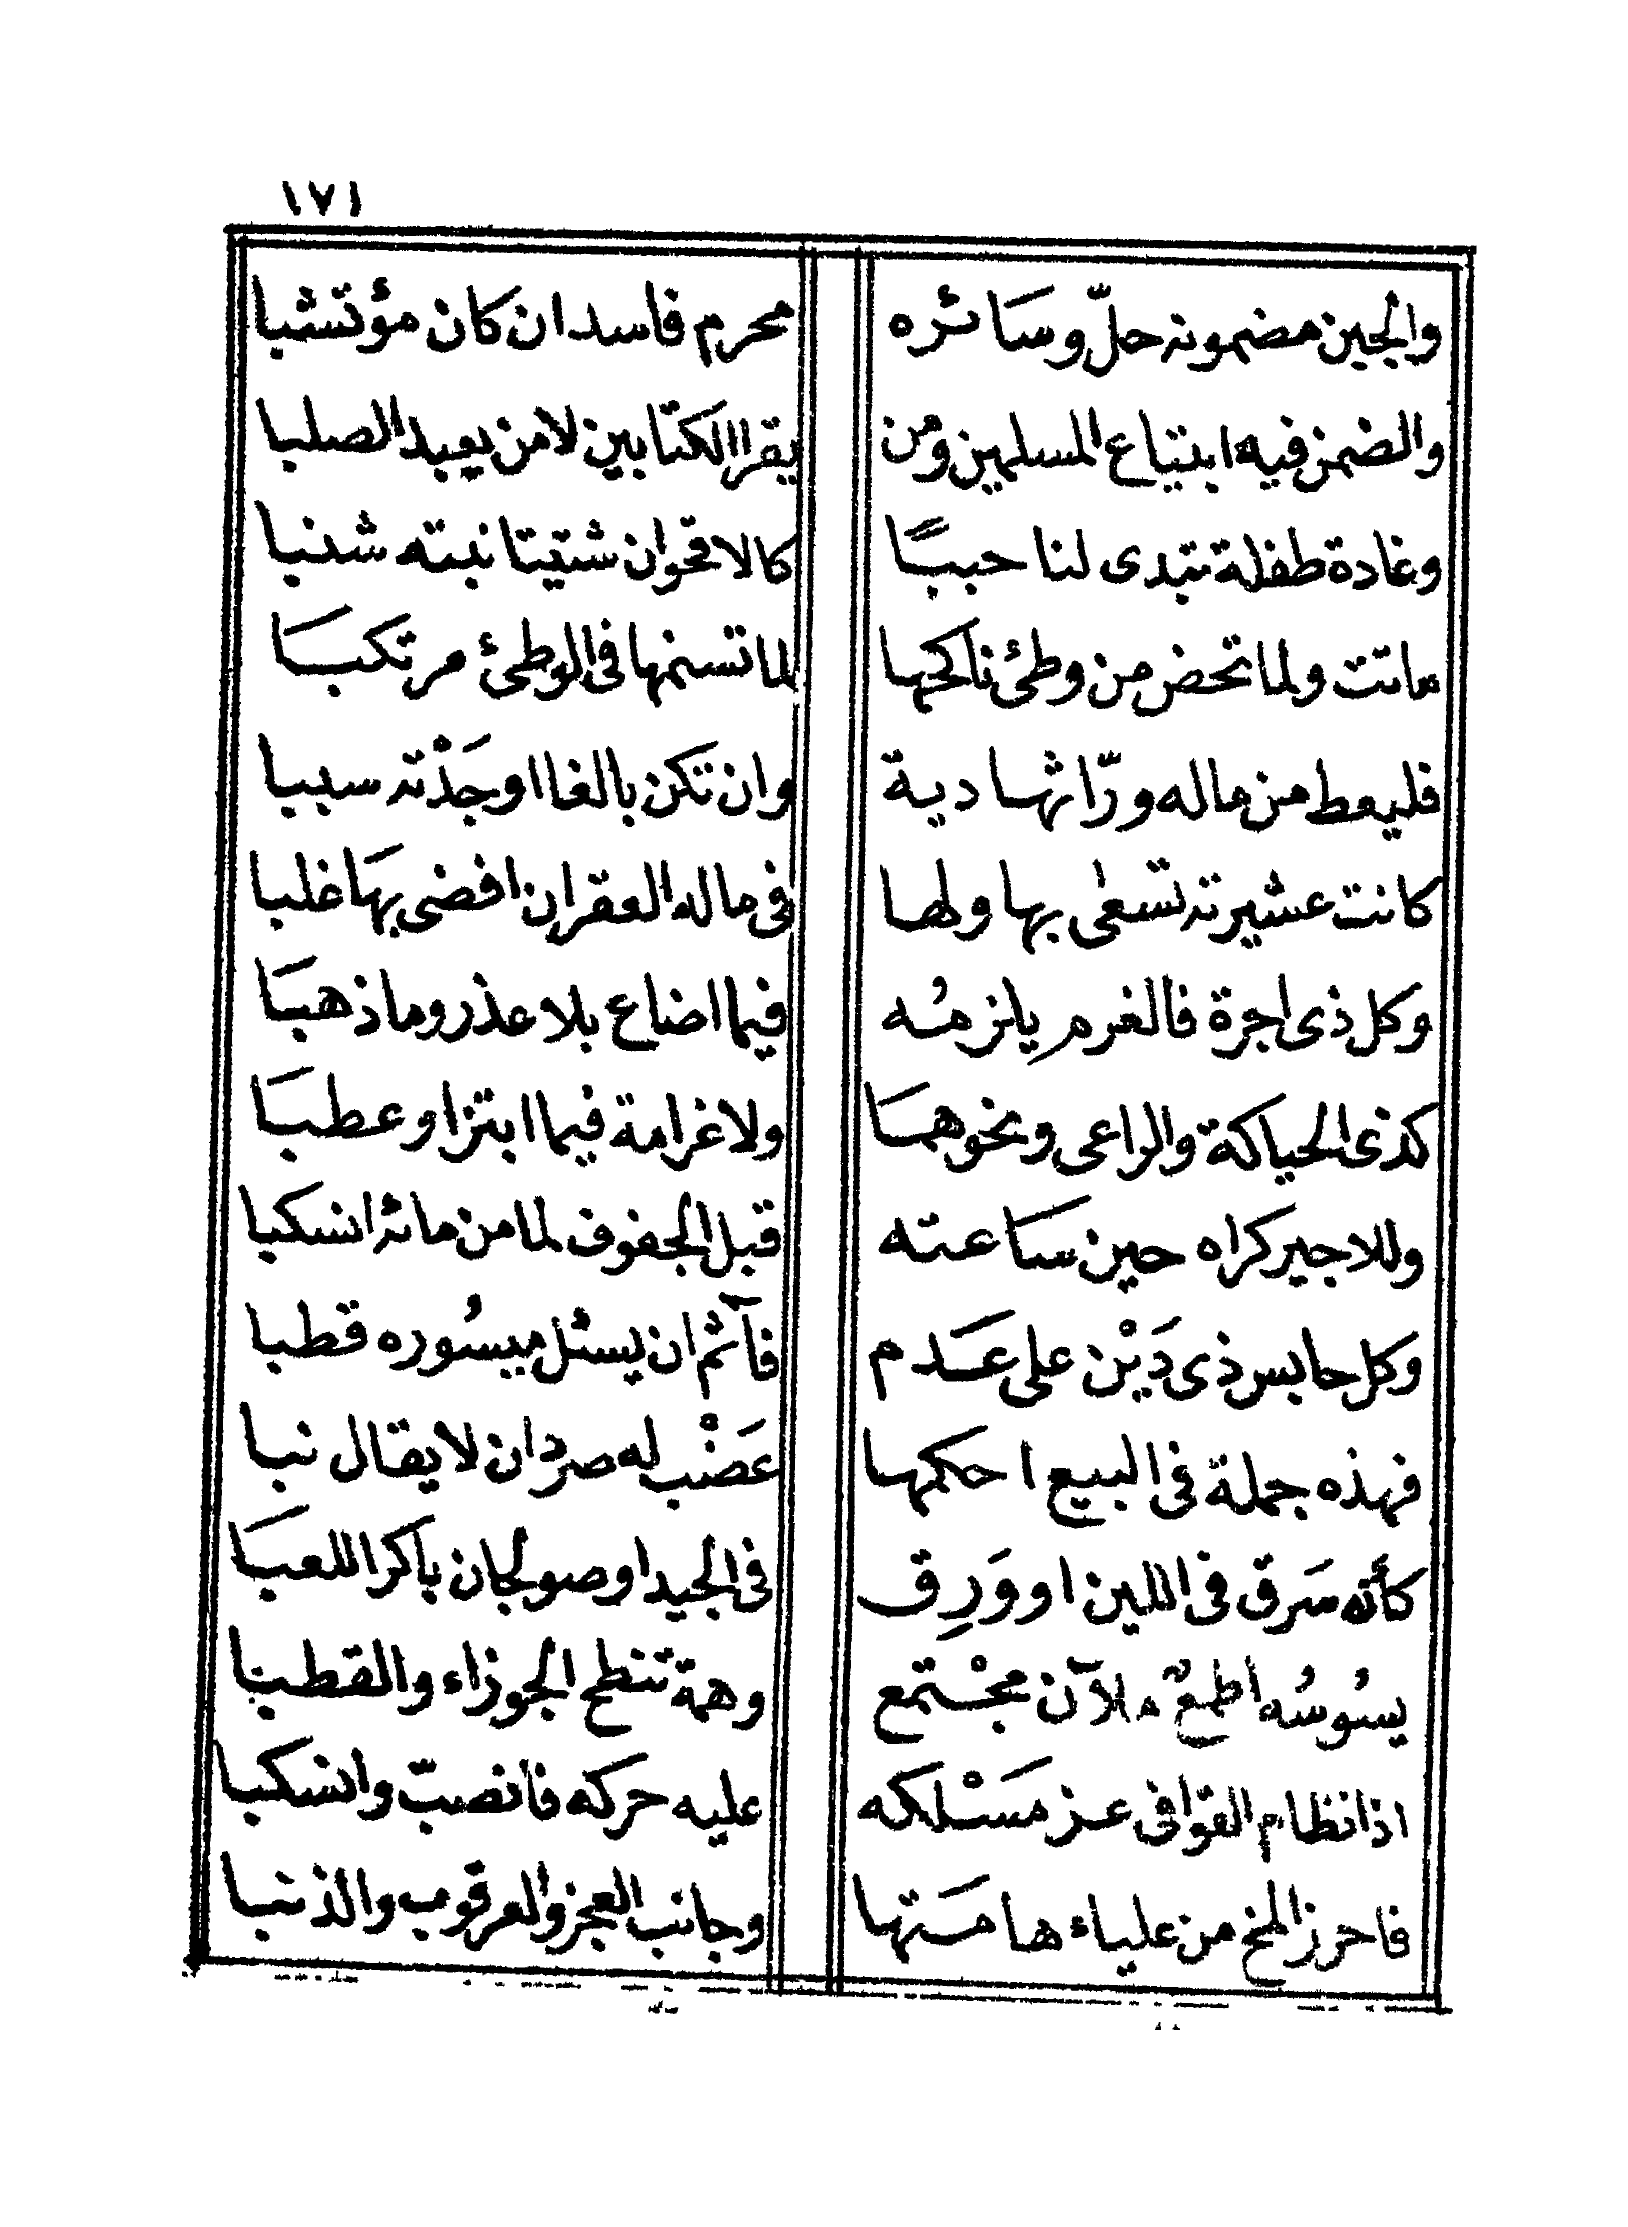 ١٧١
والجبن مضمونه حلّ وسائره محرم فاسد ان كان مؤتشبا
والضمن فيه ابتياع المسلمين ومن يقرا الكتابين لا من يعبد الصلبا
وغادة طفلة تبدى لنا حببًا كالاقحوان شتيتا نبته شنبا
ماتت ولما تحض من وطئ ناكحها لما تسنمها فى الوطئ مرتكبا
فليعط من ماله ورّاثها دية وان تكن بالغا اوجَدْته سببا
كانت عشيرته تسعى بها ولها فى ماله العقر ان افضى بها غلبا
وكل ذى اجرة فالغرم يلزمُه فيما اضاع بلا عذر وما ذهبا
كذى الحياكة والراعى ونحوهما ولا غرامة فيما ابتز او عطبا
وللاجير كراه حين ساعته قبل الجفوف لما من مائه انسكبا
وكل حابس ذى دَيْن على عَدم فآثم ان يسئل ميسُوره قطبا
فهذه جملة فى البيع احكمها عَضْب له صردان لا يقال نبا
كأنه سَرق فى اللين او وَرِق فى الجيد او صولجان باكر اللعبا
يسُوسُه اطمعٌ ملآن مجْتمع وهمة تنطح الجوزاء والقطبا
اذا نظام القوافى عز مَسْلكه عليه حركه فانصبّ وانسكبا
فاحرز المخ من علياء هامتها وجانب العجز والعرقوب والذنبا